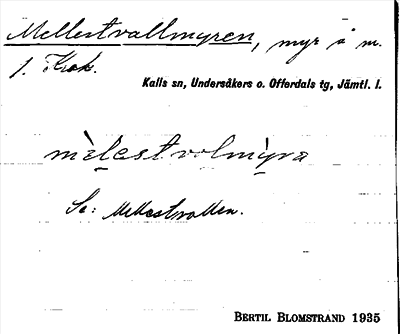 Mellestvallmyren, myr å m.
1. Krok.
Kalls sn, Undersåkers o. Offerdals tg, Jämtl. l.
mèlestvolmỳra
Se: Mellestvallen.
BERTIL BLOMSTRAND 1935